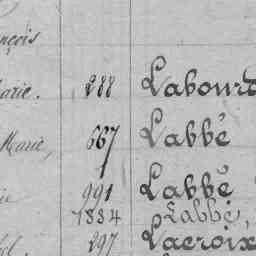 nçois
Marie. 288 Labourd
Marie, 667 Labbé
991 Labbé
1834 Labbé,
297 Lacroix